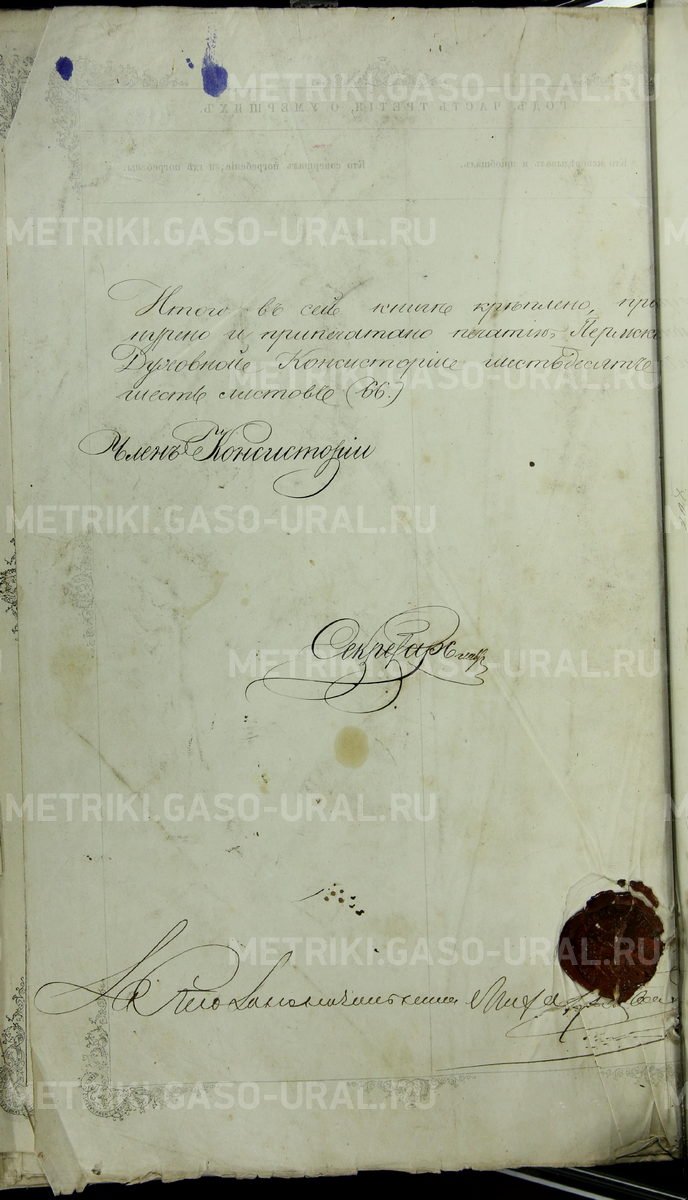 METRIKI.GASO-URAL.RU
ГОДЪ, ЧАСТЬ ТРЕТІЯ, О УМЕРШИХЪ.
Кто исповѣдывалъ и пріобщалъ.
Кто совершалъ погребеніе, и гдѣ погребены.
METRIKI.GASO-URAL.RU
Итого въ сей книгѣ крѣплено, про
нурено и припечатано печатію, Пермск
METRIKI.GASO-URAL.RU
Духовной Консисторіи шестьдесятъ
шесть листовъ (66.)
Членъ Консисторіи
METRIKI.GASO-URAL.RU
Секретарь
METRIKI.GASO-URAL.RU
METRIKI.GASO-URAL.RU
METRIKI.GASO-URAL.RU
METRIKI.GASO-URAL.RU